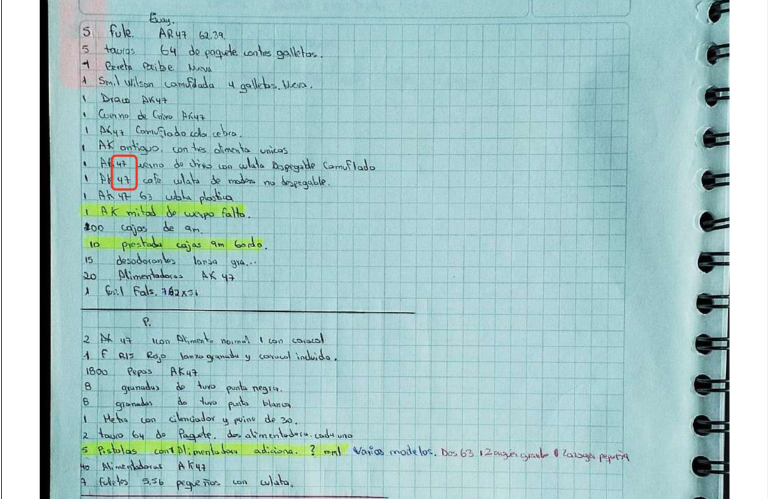 5 fule. AR47 62.39.
5 tauros 64 de paquete con tes galletos.
1 Bereta Nueva
1 Smil Wilson camuflada 4 galletos. Nueva.
1 Draco AK47
1 Cuerno de Chivo AK47
1 AK47 Camuflado colo cebra.
1 AK antiguo. con tes alimenta unicas
1 AK 47 cuerno de chivo con culata Despegable Camuflado
1 AK 47 cafe culata de madera no despegable.
1 AK 47 63 culata plastica
1 AK mitad de cuerpo falto.
200 cajas de 9m.
10 prestada cajas 9m Gordo.
15 desodorantes lanza gra...
20 Alimentadoras AK 47
1 Fals. 762x51
P.
2 AK 47 1con Alimenta normal 1 con caracol
1 F R15 Rojo lanzagranada y caracol incluido.
1800 Pepas AK47
8 granadas de tuvo punta negra.
8 granadas de tuvo punta blanca
1 Metra con cilenciador y peine de 30.
2 tauro 64 de Paquete. dos alimentadora. cada uno
5 Pistolas con Alimentadora adiciona. 9 mml Varios modelos. Dos 63
40 Alimentadoras AK47
7 fuletes 5.56 pequeños con culata.